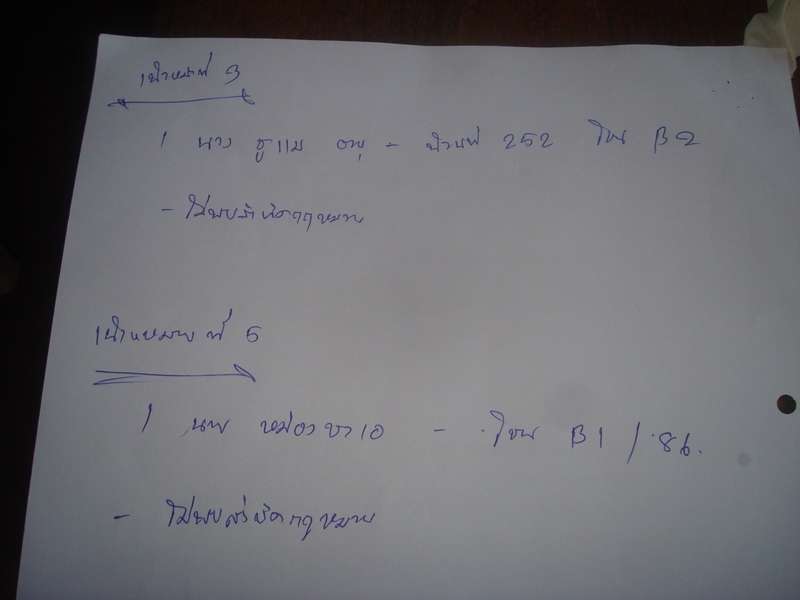 เป้าหมายที่ 3
1 นาง ชูแม - บ้านที่ 252 โซน B2
- ไม่พบสิ่งผิดกฎหมาย
เป้าหมายที่ 5
1 นาย หม่องซาเอ - โซน B1 / 86.
- ไม่พบสิ่งผิดกฎหมาย